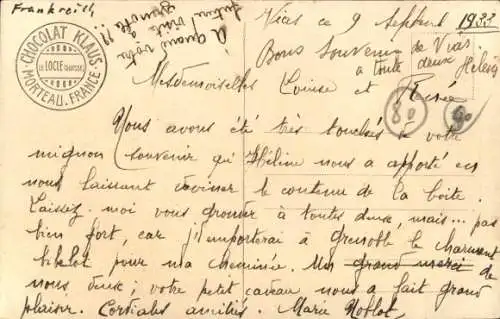 Frankreich
CHOCOLAT KLAUS
LE LOCLE (SUISSE)
MORTEAU. FRANCE
à quand votre
futur visite
Grenoble ???
Vias ce 9 Septembre 1933
Bons souvenirs de Vias
à toute deux Hélène
Mesdemoiselles Louise et Renée
80
90
Nous avons été très touchés de votre
mignon souvenir qu'Héline nous a apporté en
nous laissant deviner le contenu de la boîte.
Laissez-moi vous gronder à toutes deux, mais... pas
bien fort, car j'emporterai à Grenoble le charmant
bibelot pour ma cheminée. Un grand merci de
nous deux; votre petit cadeau nous a fait grand
plaisir. Cordiales amitiés. Marie Noblot